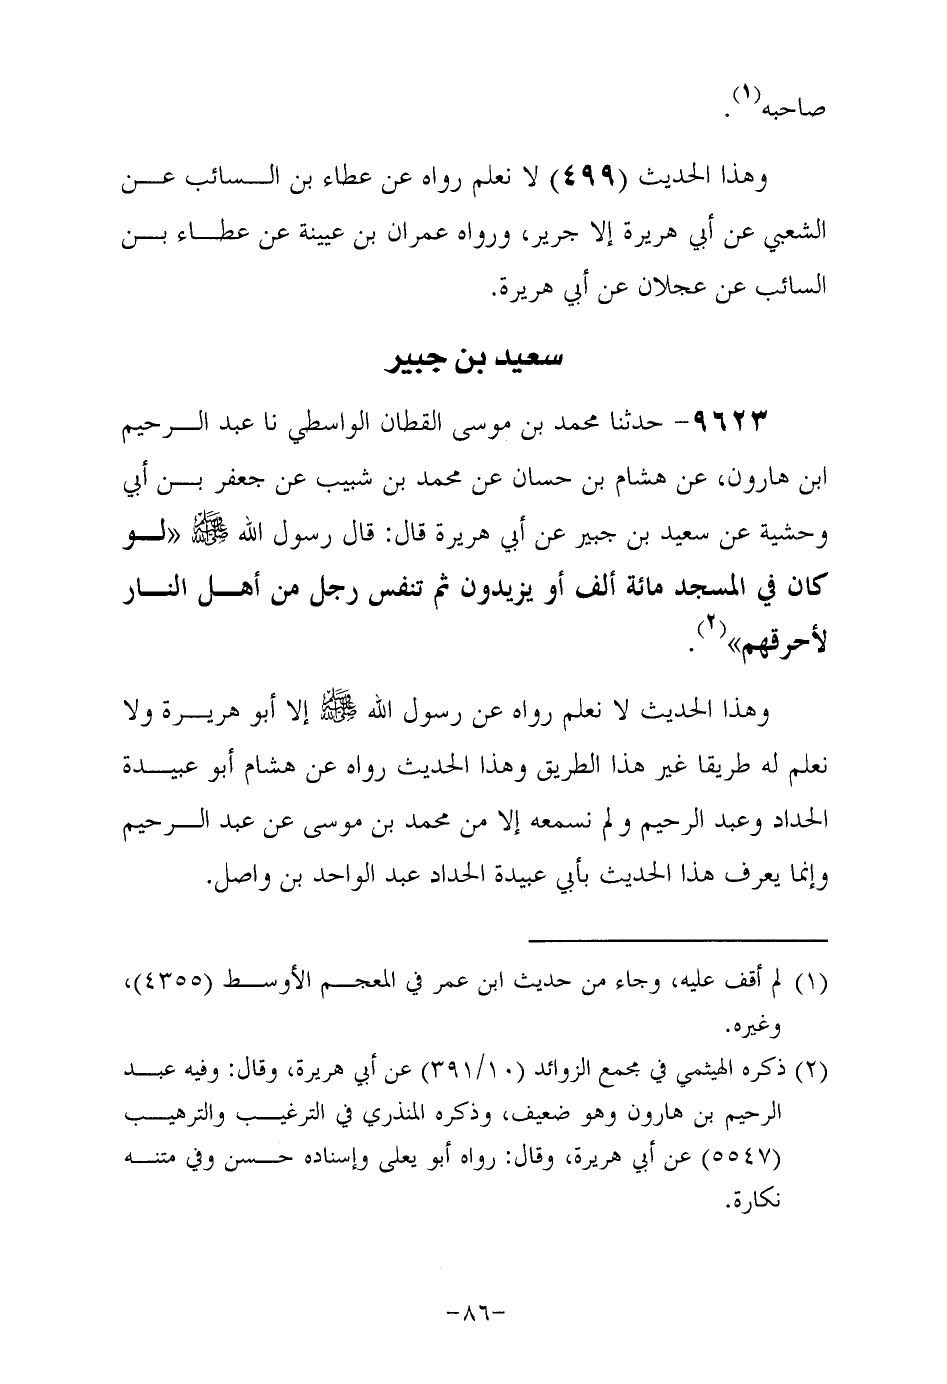 صاحبه(١).
وهذا الحديث (٤٩٩) لا نعلم رواه عن عطاء بن السائب عن
الشعبي عن أبي هريرة إلا جرير، ورواه عمران بن عيينة عن عطاء بن
السائب عن عجلان عن أبي هريرة.
سعيد بن جبير
٩٦٢٣- حدثنا محمد بن موسى القطان الواسطي نا عبد الرحيم
ابن هارون، عن هشام بن حسان عن محمد بن شبيب عن جعفر بن أبي
وحشية عن سعيد بن جبير عن أبي هريرة قال: قال رسول الله ﷺ «لو
كان في المسجد مائة ألف أو يزيدون ثم تنفس رجل من أهل النار
لأحرقهم»(٢).
وهذا الحديث لا نعلم رواه عن رسول الله ﷺ إلا أبو هريرة ولا
نعلم له طريقا غير هذا الطريق وهذا الحديث رواه عن هشام أبو عبيدة
الحداد وعبد الرحيم ولم نسمعه إلا من محمد بن موسى عن عبد الرحيم
وإنما يعرف هذا الحديث بأبي عبيدة الحداد عبد الواحد بن واصل.
(١) لم أقف عليه، وجاء من حديث ابن عمر في المعجم الأوسط (٤٣٥٥)،
وغيره.
(٢) ذكره الهيثمي في مجمع الزوائد (٣٩١/١٠) عن أبي هريرة، وقال: وفيه عبد
الرحيم بن هارون وهو ضعيف، وذكره المنذري في الترغيب والترهيب
(٥٥٤٧) عن أبي هريرة، وقال: رواه أبو يعلى وإسناده حسن وفي متنه
نكارة.
-٨٦-